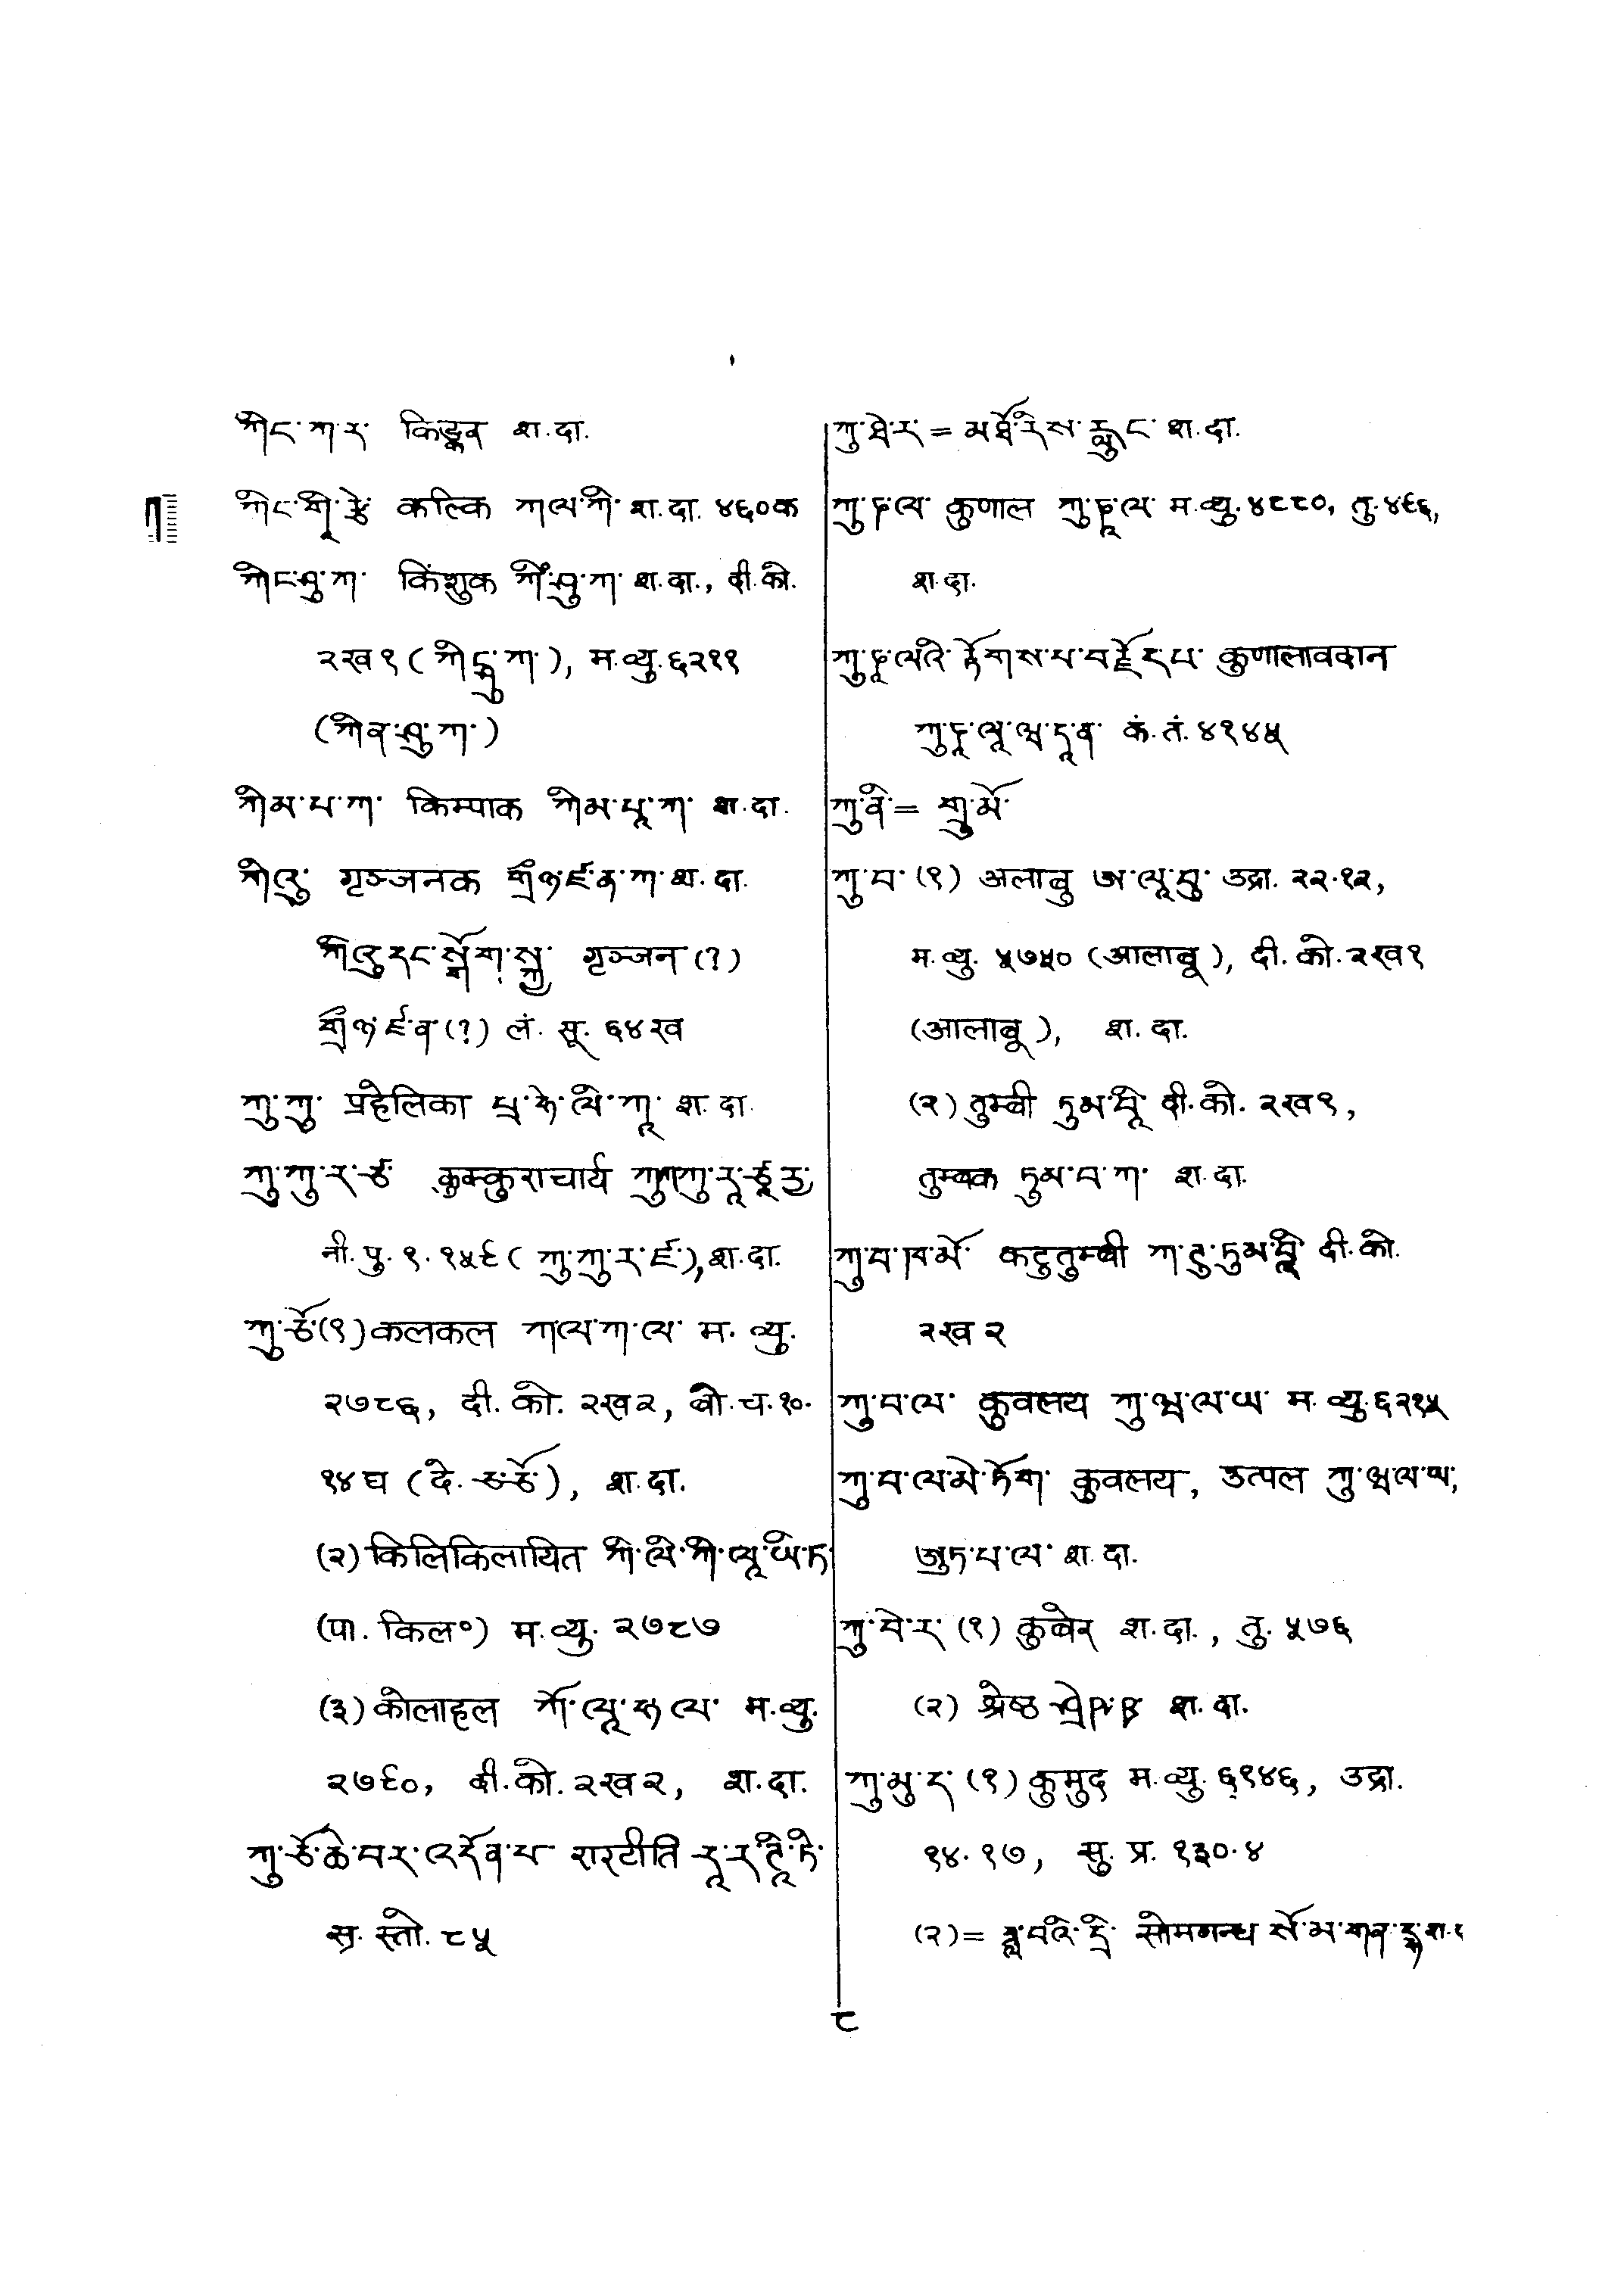 ཀིང་ཀ་ར་ किङ्कर श.दा.
ཀིང་གཱི་ཙེ कल्कि ཀལ་ཀི་ श.दा. ४६०क
ཀིང་ཤུ་ཀ་ किंशुक ཀིཾ་ཤུ་ཀ་ श.दा., दी.को.
२ख१ (ཀི་ཤུ་ཀ་), म.व्यु.६२११
(ཀིན་ཤུ་ཀ་)
ཀིམ་པ་ཀ་ किम्पाक ཀིམ་པཱ་ཀ་ श.दा.
ཀིའུ་ गृञ्जनक གྲྀཉ་ཛ་ན་ཀ་ श.दा.
ཀིའུ་དང་སྒོག་སྐྱ་ गृञ्जन (?)
གྲྀཉ་ཛ་ན་(?) लं. सू. ६४ख
ཀུ་ཀུ་ प्रहेलिका པྲ་ཧེ་ལི་ཀཱ་ श.दा.
ཀུ་ཀུ་ར་ཙ་ कुक्कुराचार्य ཀུཀ་ཀུ་རཱ་ཙཱ་རྱ་
नी.पु.१.१५९ (ཀུ་ཀུ་ར་ཛ་), श.दा.
ཀུ་ཅོ་(१) कलकल ཀ་ལ་ཀ་ལ་ म. व्यु.
२७८६, दी. को. २ख२, बो.च.१०.
१४घ (दे. ཅ་ཅོ་), श.दा.
(२) किलिकिलायित ཀི་ལི་ཀི་ལཱ་ཡི་ཏ་
(पा. किल॰) म.व्यु. २७८७
(३) कोलाहल ཀོ་ལཱ་ཧ་ལ་ म.व्यु.
२७९०, दी.को.२ख२, श.दा.
ཀུ་ཅོ་ཆེ་བར་འདོན་པ་ रारटीति རཱ་ར་ཊཱི་ཏི་
स्र. स्तो. ८५
ཀུ་ཐེ་ར་ = མཐོ་རིས་རླུང་ श.दा.
ཀུ་ཎ་ལ་ कुणाल ཀུ་ཎཱ་ལ་ म.व्यु.४८८०, तु.४९६,
श.दा.
ཀུ་ཎཱ་ལའི་རྟོགས་པ་བརྗོད་པ་ कुणालावदान
ཀུ་ཎཱ་ལཱ་ཝ་དཱ་ན་ कं.तं. ४१४५
ཀུ་ནི་ = གྲུ་མོ་
ཀུ་བ་ (१) अलाबु ཨ་ལཱ་བུ་ उद्रा. २२.१२,
म.व्यु. ५७५० (आलाबू), दी.को.२ख१
(आलाबू), श.दा.
(२) तुम्बी ཏུམ་བཱི་ दी.को. २ख१,
तुम्बक ཏུམ་བ་ཀ་ श.दा.
ཀུ་བ་ཁ་མོ་ कटुतुम्बी ཀ་ཊུ་ཏུམ་བཱི་ दी.को.
२ख२
ཀུ་བ་ལ་ कुवलय ཀུ་ཝ་ལ་ཡ་ म. व्यु.६२१५
ཀུ་བ་ལ་མེ་ཏོག་ कुवलय, उत्पल ཀུ་ཝ་ལ་ཡ,
ཨུཏ་པ་ལ་ श.दा.
ཀུ་བེ་ར་ (१) कुबेर श.दा., तु. ५७६
(२) श्रेष्ठ ཤྲེཥ་ཋ श.दा.
ཀུ་མུ་ད་ (१) कुमुद म.व्यु. ६१४६, उद्रा.
१४.१७, सु. प्र. १३०.४
(२) = ཟླ་བའི་དྲི་ सोमगन्ध སོ་མ་གན་དྷ་ श.
८